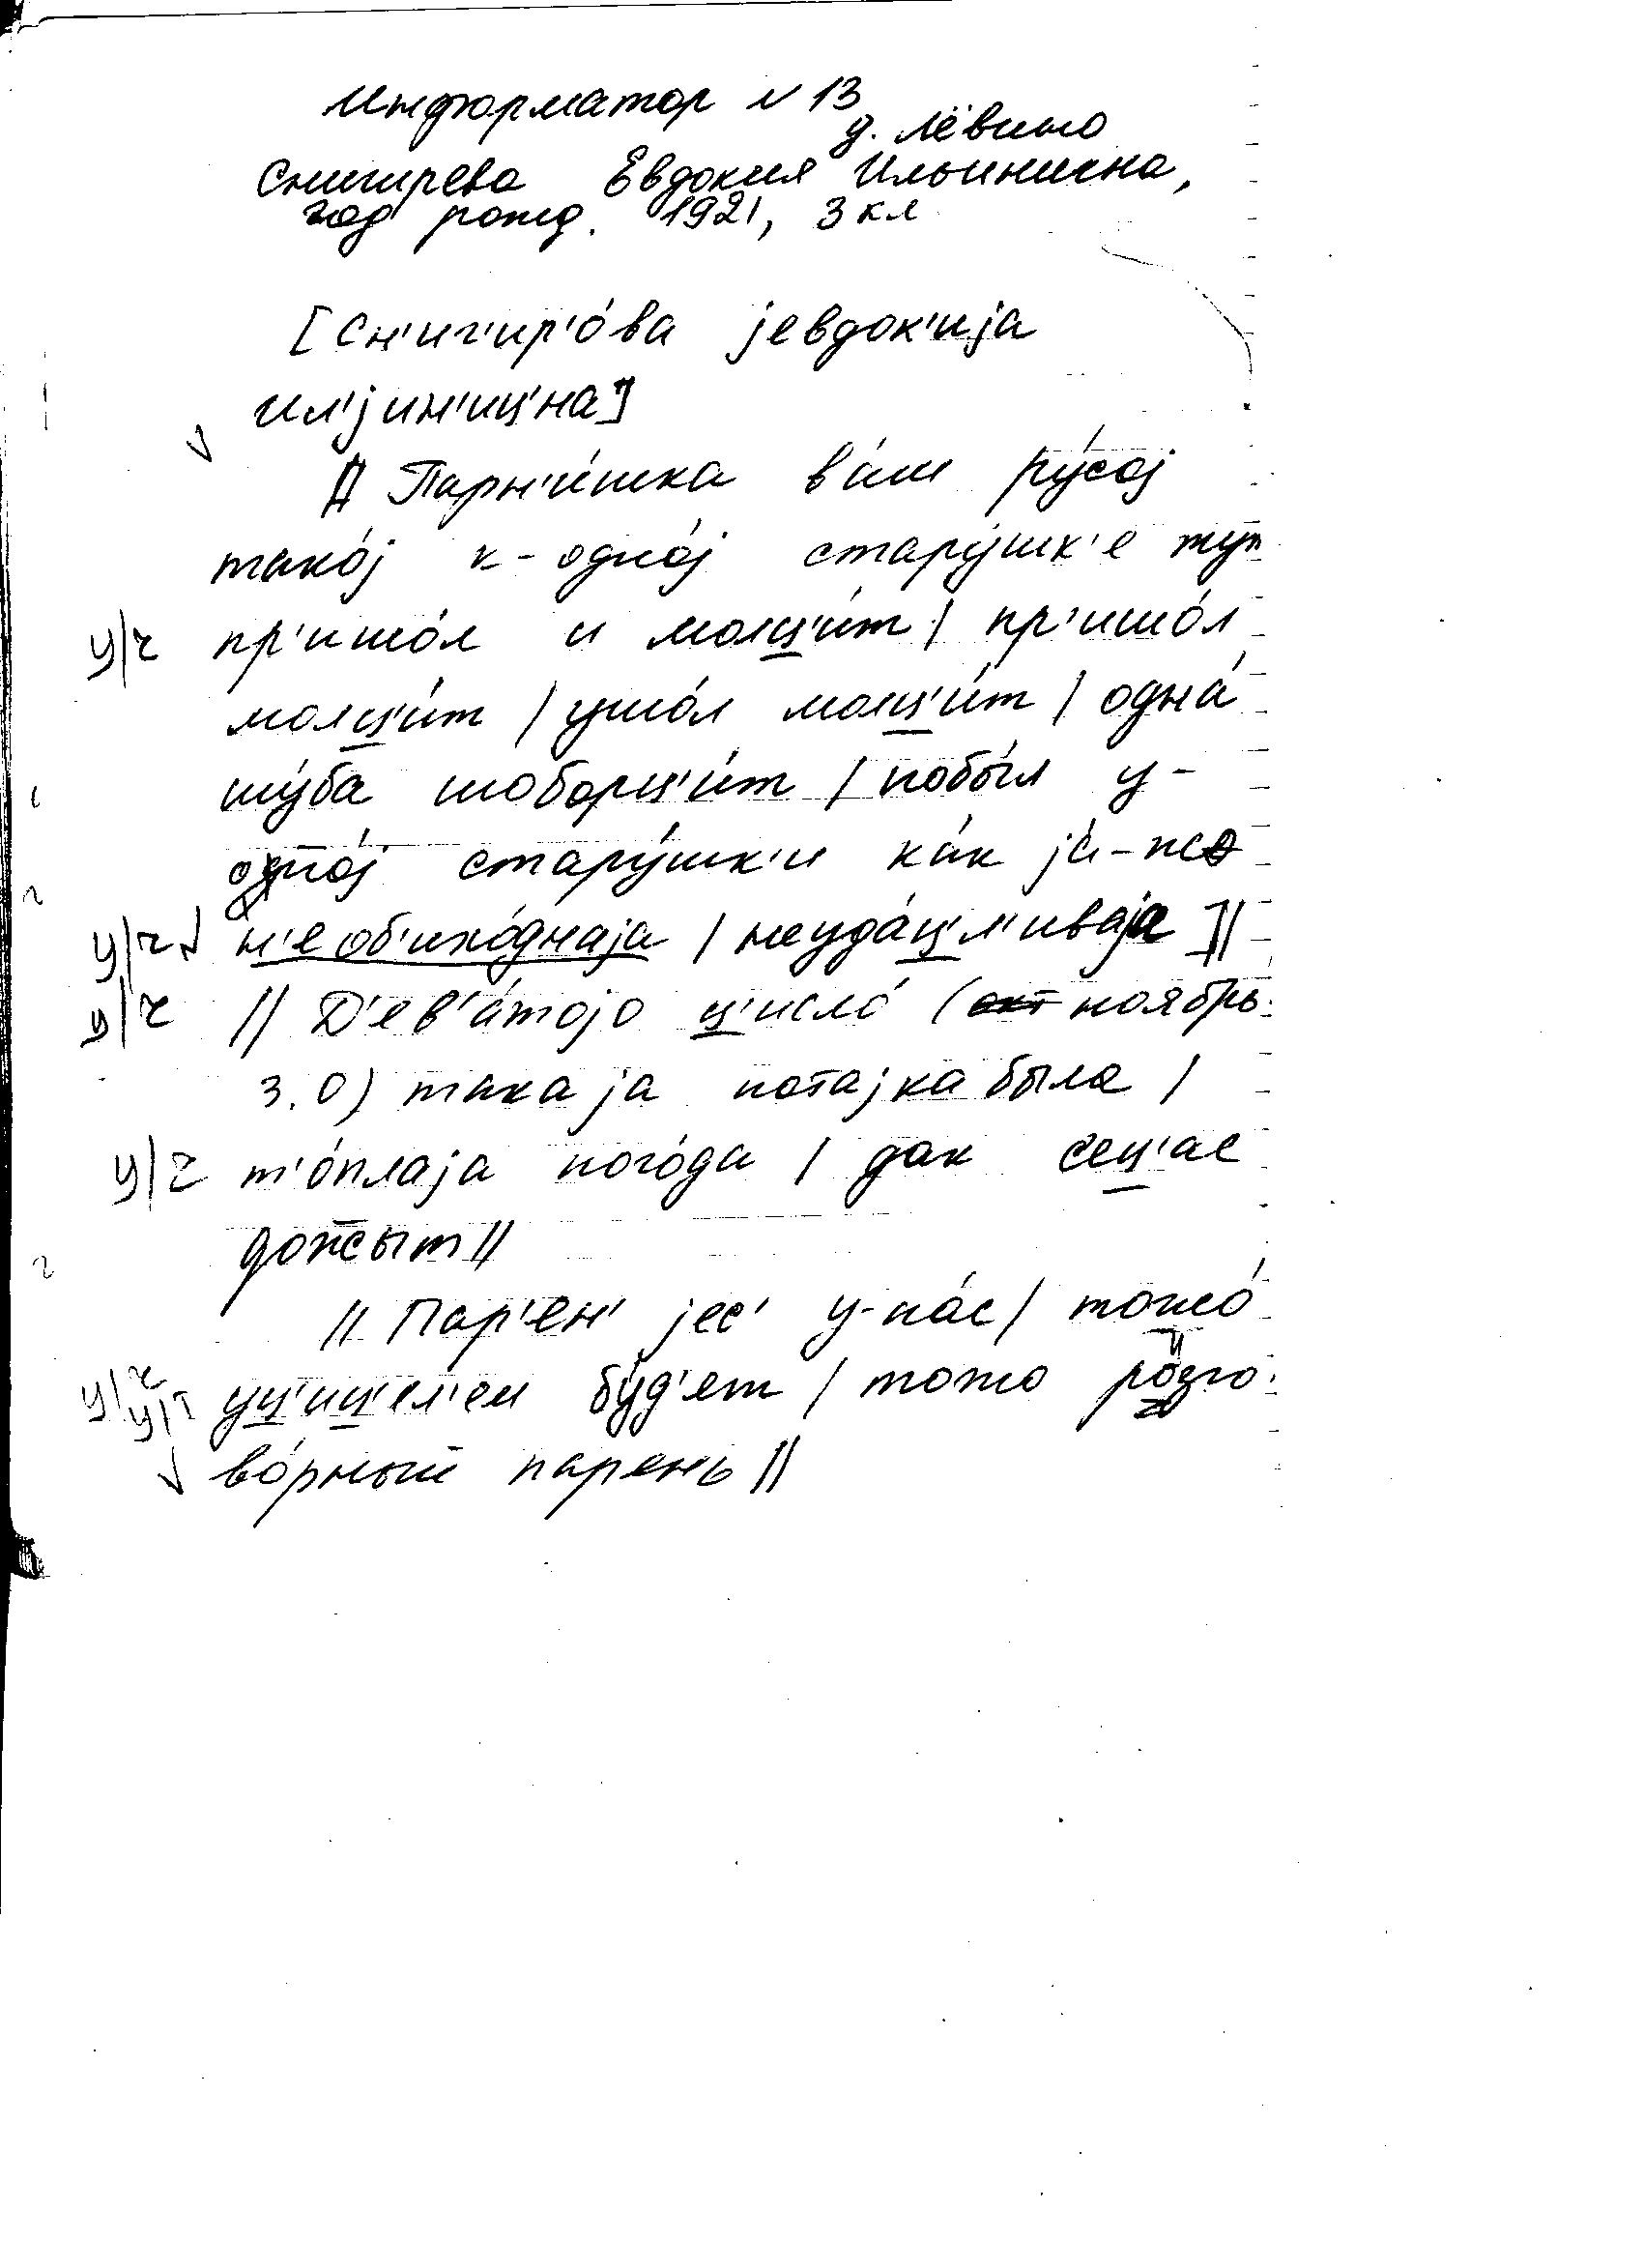 Информатор N 13
д. Лёвино
Снигирева Евдокия Ильинична,
год рожд. 1921, 3 кл
[Сн'иг'ир'о́ва јевдок'ија
ил'јин'иц'на]
// Парн'и́шка ва́ш ру́сој
тако́ј к-одно́ј стару́шк'е тут
ц/ч пр'ишо́л и молц'и́т / пр'ишо́л
молц'и́т / ушо́л молц'и́т / одна́
шу́ба шоборц'и́т / побы́л у-
одно́ј стару́шк'и ка́к ја́-жо
ц/ч н'е об'ихо́днаја / неуда́ц'л'иваја ]//
ц/ч // Д'ев'а́тојо ц'исло́ (окт ноябрь
з.о) така ја потајка была /
ц/ч т'о́плаја пого́да / дак сец'ас
дожжыт //
// Пар'ен' јес' у-на́с / тожо́
ц/ч ц/т уц'иц'ел'ем бу́д'ет / тожо розго-
во́рный парень //